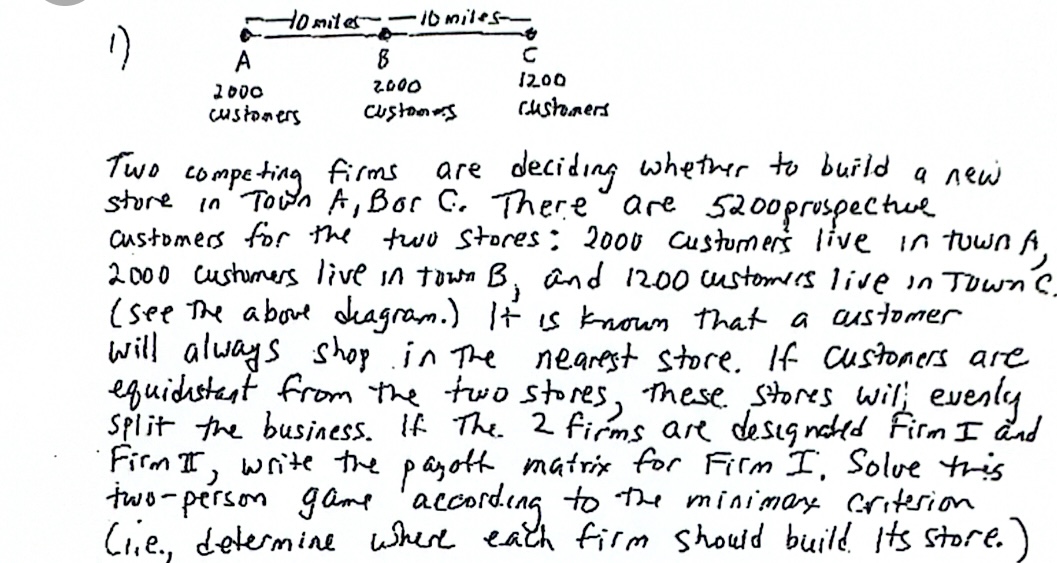 10 miles 10 miles
1)
A B C
2000 2000 1200
customers customers customers
Two competing firms are deciding whether to build a new
store in Town A, B or C. There are 5200 prospective
customers for the two stores: 2000 customers live in town A,
2000 customers live in town B, and 1200 customers live in Town C.
(see the above diagram.) It is known that a customer
will always shop in the nearest store. If customers are
equidistant from the two stores, these stores will evenly
split the business. If the 2 firms are designated Firm I and
Firm II, write the payoff matrix for Firm I. Solve this
two-person game according to the minimax criterion
(i.e., determine where each firm should build its store.)